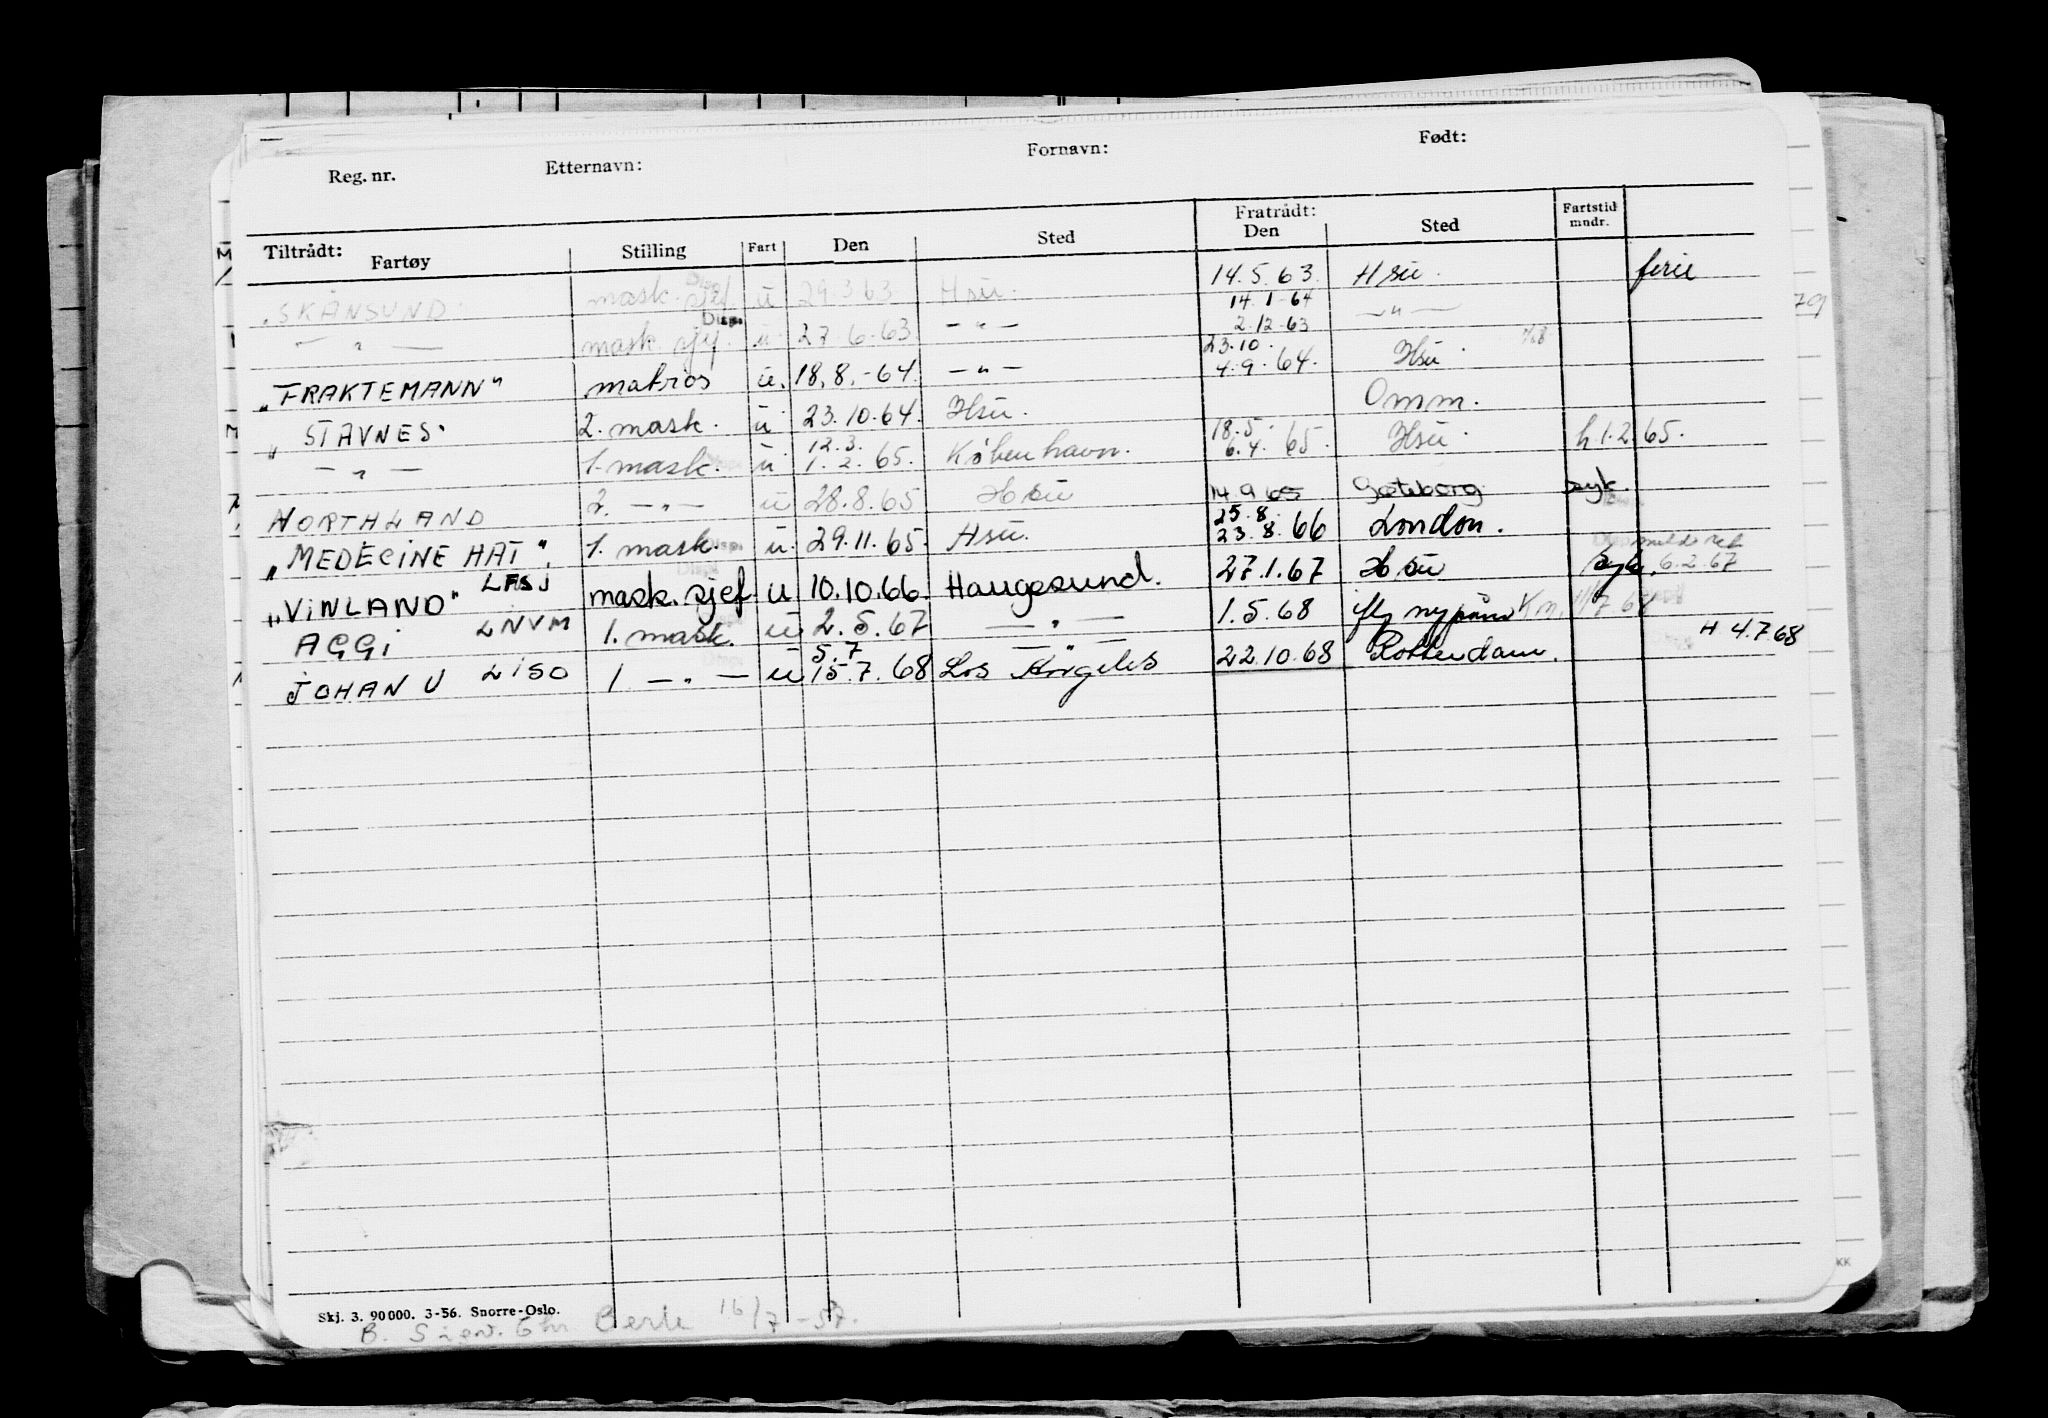 Reg. nr. Etternavn: Fornavn: Født:
Tiltrådt: Fartøy Stilling Fart Den Sted Fratrådt: Den Sted Fartstid mndr.
"SKÅNSUND" mask. sjef u 29.3.63 Hsu. 14.5.63. Hsu. ferie
14.1-64
— " — mask. sjef. Disp. u. 27.6.63 — " — 2.12.63 — " —
23.10.
"FRAKTEMANN" matros u. 18.8.-64. — " — 4.9.64. Hsu.
"STAVNES" 2. mask. u 23.10.64. Hsu. Omm.
12.3. 18.5.
— " — 1. mask. u. 1.2.65. København. 6.4.65. Hsu. h 1.2.65.
NORTHLAND 2. — " — u 28.8.65 Hsu 14.9.65 Gøteborg syk
25.8.
"MEDECINE HAT". 1. mask. Disp. u. 29.11.65. Hsu. 23.8.66 London.
"VINLAND" LFSJ mask. sjef u 10.10.66. Haugesund. 27.1.67 Hsu syk. 6.2.67
AGGI LNVM 1. mask. u 2.5.67 — " — 1.5.68
5.7 H 4.7.68
JOHAN U LISO 1. — " — u 15.7.68 Los Angeles 22.10.68 Rotterdam.
Skj. 3. 90 000. 3-56. Snorre-Oslo.
16/7-57.
KK